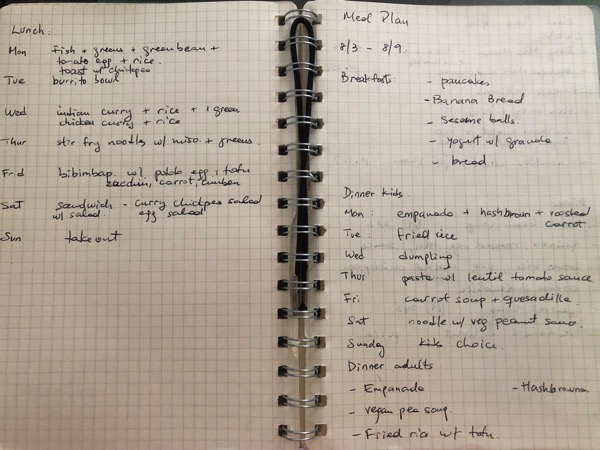 Lunch:
Mon fish + greens + greenbean +
tomato egg + rice.
toast w/ chickpea
Tue burrito bowl
Wed indian curry + rice + 1 green
chicken curry + rice
Thur stir fry noodles w/ miso + greens.
Frid bibimbap w/ potato egg, tofu
zucchini, carrot,
Sat sandwich - curry chickpea salad
w/ salad. egg salad
Sun takeout
Meal Plan
8/3 - 8/9.
Breakfasts:
- pancakes
- Banana Bread
- Sesame balls
- yogurt w/ granola
- bread.
Dinner kids
Mon: empanada + hashbrown + roasted
carrot.
Tue. fried rice
Wed dumpling
Thur pasta w/ lentil tomato sauce
Fri. carrot soup + quesadilla
Sat noodle w/ veg peanut sauce.
Sunday kids choice.
Dinner adults
- Empanada - Hashbrowns
- vegan pea soup.
- Fried rice w/ tofu.